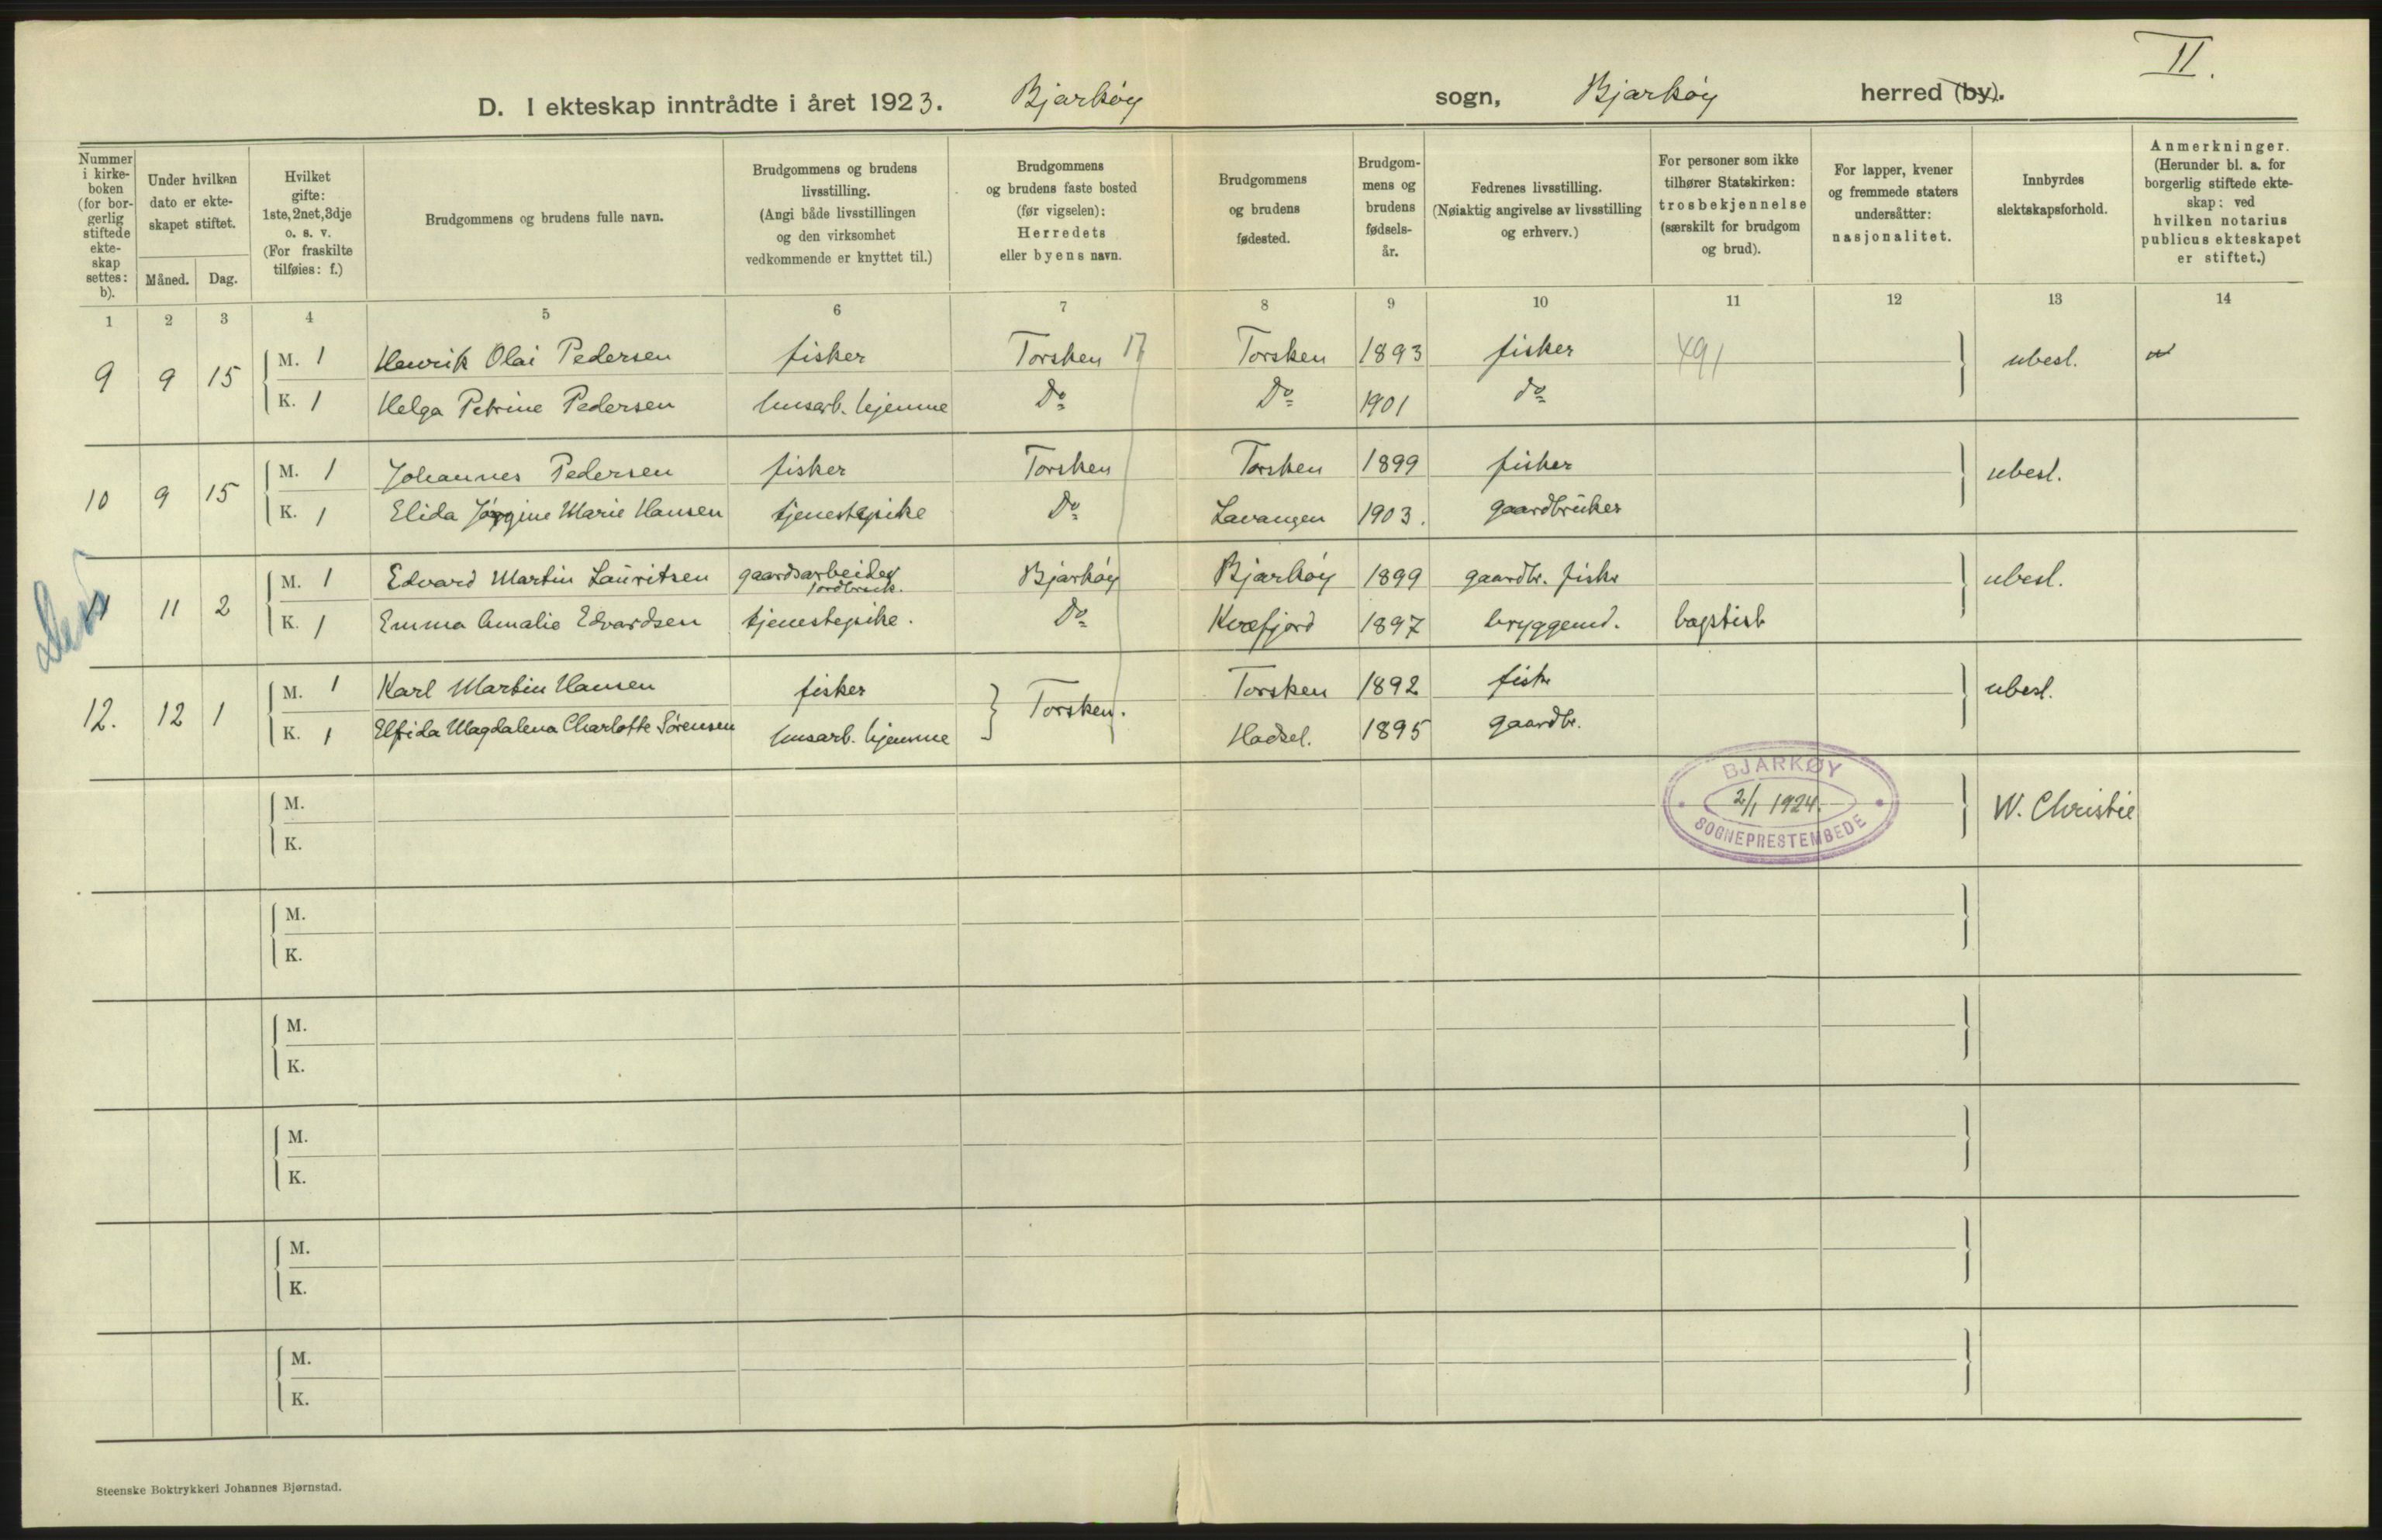 II.
D. I ekteskap inntrådte i året 1923. Bjarkøy sogn, Bjarkøy herred (by).
Nummer i kirke-boken (for bor-gerlig stiftede ekte-skap settes: b).
Under hvilken dato er ekte-skapet stiftet.
Måned. Dag.
Hvilket gifte: 1ste, 2net, 3dje o. s. v. (For fraskilte tilføies: f.)
Brudgommens og brudens fulle navn.
Brudgommens og brudens livsstilling. (Angi både livsstillingen og den virksomhet vedkommende er knyttet til.)
Brudgommens og brudens faste bosted (før vigselen): Herredets eller byens navn.
Brudgommens og brudens fødested.
Brudgom-mens og brudens fødsels-år.
Fedrenes livsstilling. (Nøiaktig angivelse av livsstilling og erhverv.)
For personer som ikke tilhører Statskirken: trosbekjennelse (særskilt for brudgom og brud).
For lapper, kvener og fremmede staters undersåtter: nasjonalitet.
Innbyrdes slektskapsforhold.
Anmerkninger. (Herunder bl. a. for borgerlig stiftede ekte-skap: ved hvilken notarius publicus ekteskapet er stiftet.)
1 2 3 4 5 6 7 8 9 10 11 12 13 14
9 9 15 M. 1 Henrik Olai Pedersen fisker Torsken 17 Torsken 1893 fisker 491 ubesl.
K. 1 Helga Petrine Pedersen husarb. hjemme Do Do 1901 do
10 9 15 M. 1 Johannes Pedersen fisker Torsken Torsken 1899 fisker ubesl.
K. 1 Elida Jørgine Marie Hansen tjenestepike Do Lavangen 1903. gaardbruker
11 2 M. 1 Edvard Martin Lauritsen gaardsarbeider jordbruk. Bjarkøy Bjarkøy 1899 gaardbr. fisker ubesl.
K. 1 Emma Amalie Edvardsen tjenestepike. Do Kvæfjord 1897 bryggemd. baptist
12. 12 1 M. 1 Karl Martin Hansen fisker Torsken. Torsken 1892 fisker ubesl.
K. 1 Elfrida Magdalena Charlotte Sørensen husarb. hjemme Hadsel. 1895 gaardbr.
M.
BJARKØY
2/1 1924.
SOGNEPRESTEMBEDE
W. Christie
K.
M.
K.
M.
K.
M.
K.
M.
K.
M.
K.
Steenske Boktrykkeri Johannes Bjørnstad.